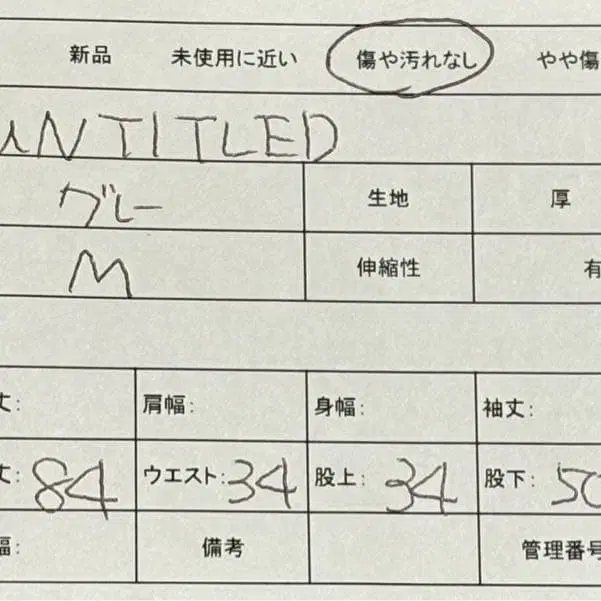 新品 未使用に近い 傷や汚れなし やや傷
UNTITLED
グレー 生地 厚
M 伸縮性 有
丈: 肩幅: 身幅: 袖丈:
丈: 84 ウエスト: 34 股上: 34 股下: 50
幅: 備考 管理番号